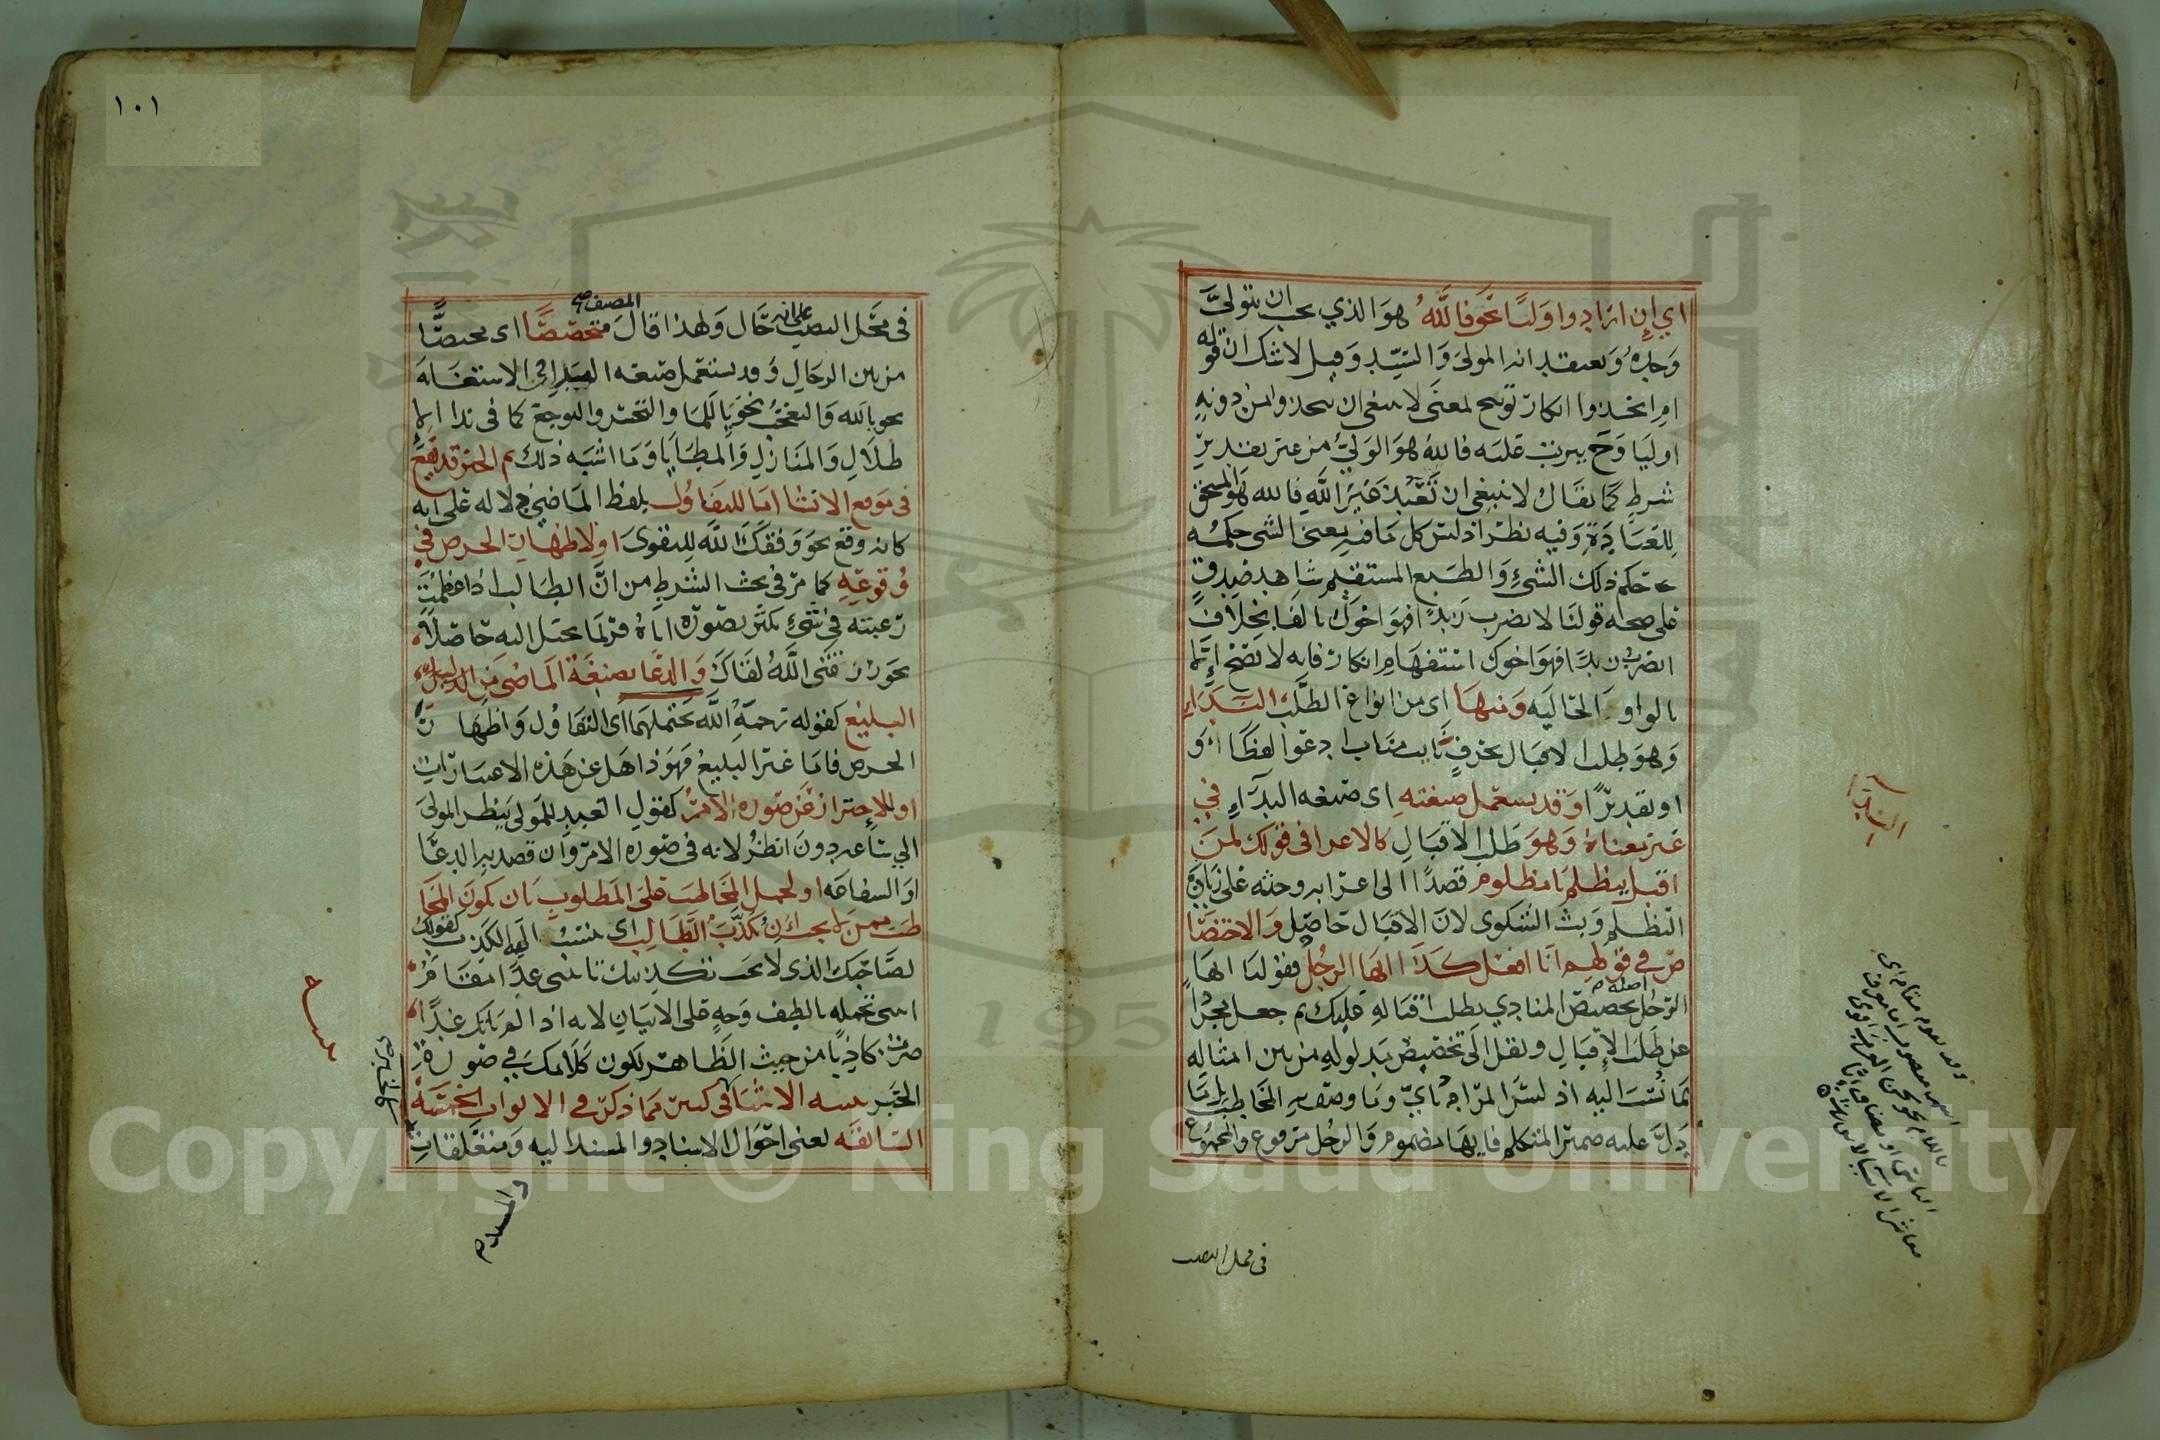 اي ان ارادوا وليًا بحق فالله هو الذي يجب ان يتولى
وحده ويعتقد انه المولى والسيد وقيل لا شك ان قوله
ام اتخذوا انكار توبيخ بمعنى لا ينبغي ان يتخذوا من دونه
اوليا وح يترتب عليه فالله هو الولي من غير تقدير
شرط كما يقال لا ينبغي ان تعبد غير الله فالله هو المستحق
للعبادة وفيه نظر اذ ليس كل ما فيه معنى الشي حكمه
حكم ذلك الشيء والطبع المستقيم شاهد صدق
على صحة قولنا لا تضرب زيدا فهو اخوك بالفا بخلاف
اتضرب زيدا فهو اخوك استفهام انكار فانه لا يصح الا
بالواو الحالية ومنها اي من انواع الطلب النداء
وهو طلب الاقبال بحرف نايب مناب ادعوا لفظا او
او تقديرًا وقد يستعمل صيغته اي صيغة النداء في
غير معناه وهو طلب الاقبال كالاغرا في قولك لمن
اقبل يتظلم يا مظلوم قصدا الى اغرائه وحثه على زيادة
التظلم وبث الشكوى لان الاقبال حاصل والاختصا
ص في قولهم انا افعل كذا ايها الرجل فقولنا ايها
الرجل اصله تخصيص المنادي بطلب اقباله عليك ثم جعل مجردا
عن طلب الاقبال ونقل الى تخصيص مدلوله من بين امثاله
بما نسب اليه اذ ليس المراد باي وما وصف به المخاطب بل ما
دل عليه ضمير المتكلم فايها مضموم والرجل مرفوع والمجموع
النداء
في محل النصب
١٠١
في محل النصب على انه حال ولهذا قال المصنف متخصصًا اي مختصًا
من بين الرجال وقد يستعمل صيغة النداء في الاستغاثة
نحو يا لله والتعجب نحو يا للما والتحسر والتوجع كما في ندا الا
طلال والمنازل والمطايا وما اشبه ذلك ثم الخبر قد يقع
في موقع الانشا اما للتفاؤل بلفظ الماضي دلالة على انه
كانه وقع نحو وفقك الله للتقوى او لاظهار الحرص في
وقوعه كما مر في بحث الشرط من ان الطالب اذا عظمت
رغبته في شيء يكثر تصوره اياه فربما يخيل اليه حاصلا
نحو رزقني الله لقاك والدعا بصيغة الماضي من
البليغ كقوله رحمه الله يحتملهما اي التفاؤل واظهار
الحرص فاما غير البليغ فهو ذاهل عن هذه الاعتبارات
او للاحتراز عن صورة الامر كقول العبد للمولى ينظر المولى
الي ساعة دون انظر لانه في صورة الامر وان قصد به الدعا
او الشفاعة او لحمل المخاطب على المطلوب بان يكون المخا
طب ممن لا يحب ان يكذب الطالب اي ينسب اليه الكذب كقولك
لصاحبك الذي لا يحب تكذيبك تاتيني غدا مقام
ائتني تحمله بالطف وجه على الاتيان لانه اذا لم ياتك غدا
صرت كاذبا من حيث الظاهر لكون كلامك في صورة
الخبر تنبيه الانشا في كثير مما ذكر في الابواب الخمسة
السابقة يعني احوال الاسناد والمسند اليه ومتعلقات
والمسند